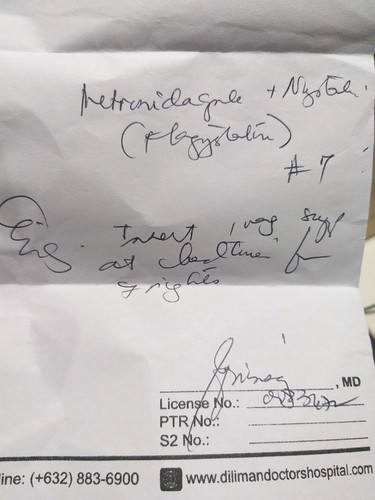 Metronidazole + Nystatin
(Flagystatin)
# 7
Sig. Insert 1 vag supp
at bedtime for
7 nights
, MD
License No.:
PTR No.:
S2 No.:
line: (+632) 883-6900 www.dilimandoctorshospital.com